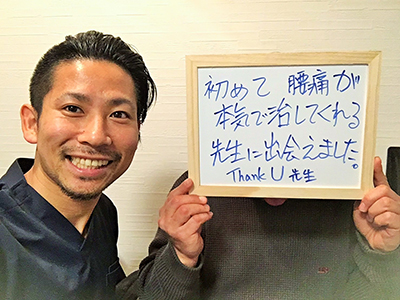 初めて 腰痛が
本気で治してくれる
先生に出会えました。
Thank U 先生